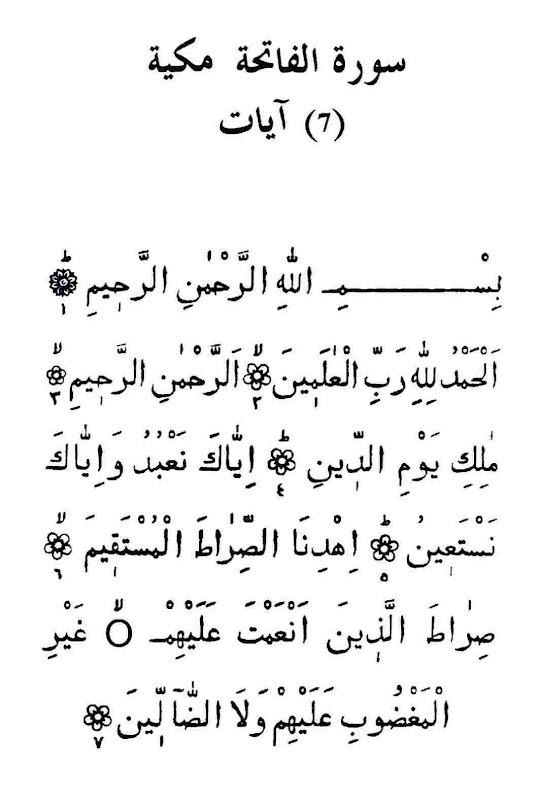 سورة الفاتحة مكية
(7) آيات
بِسْــــــــمِ اللّٰهِ الرَّحْمٰنِ الرَّحٖيمِ ۞ ١ ط
اَلْحَمْدُ لِلّٰهِ رَبِّ الْعَالَمٖينَ ۞ ٢ لا اَلرَّحْمٰنِ الرَّحٖيمِ ۞ ٣ لا
مٰلِكِ يَوْمِ الدّٖينِ ۞ ٤ ط اِيَّاكَ نَعْبُدُ وَاِيَّاكَ
نَسْتَعٖينُ ۞ ٥ ط اِهْدِنَا الصِّرَاطَ الْمُسْتَقٖيمَ ۞ ٦ لا
صِرَاطَ الَّذٖينَ اَنْعَمْتَ عَلَيْهِمْ ○ لا غَيْرِ
الْمَغْضُوبِ عَلَيْهِمْ وَلَا الضَّٓالّٖينَ ۞ ٧